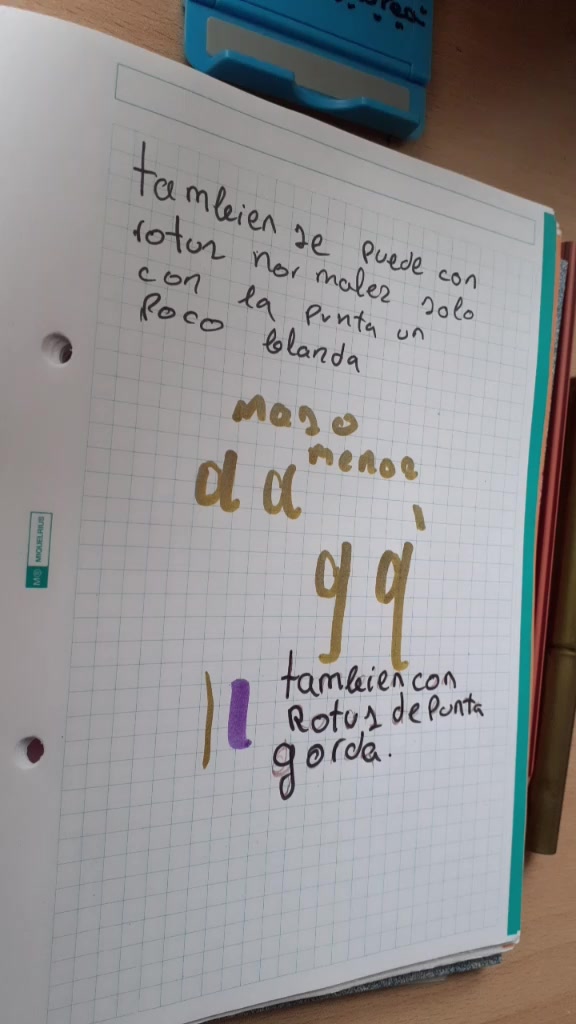 tambien se puede con
rotus normales solo
con la punta un
Poco blanda
mas o
menos
a a
g g
tambien con
Rotus de Punta
gorda.
MIQUELRIUS